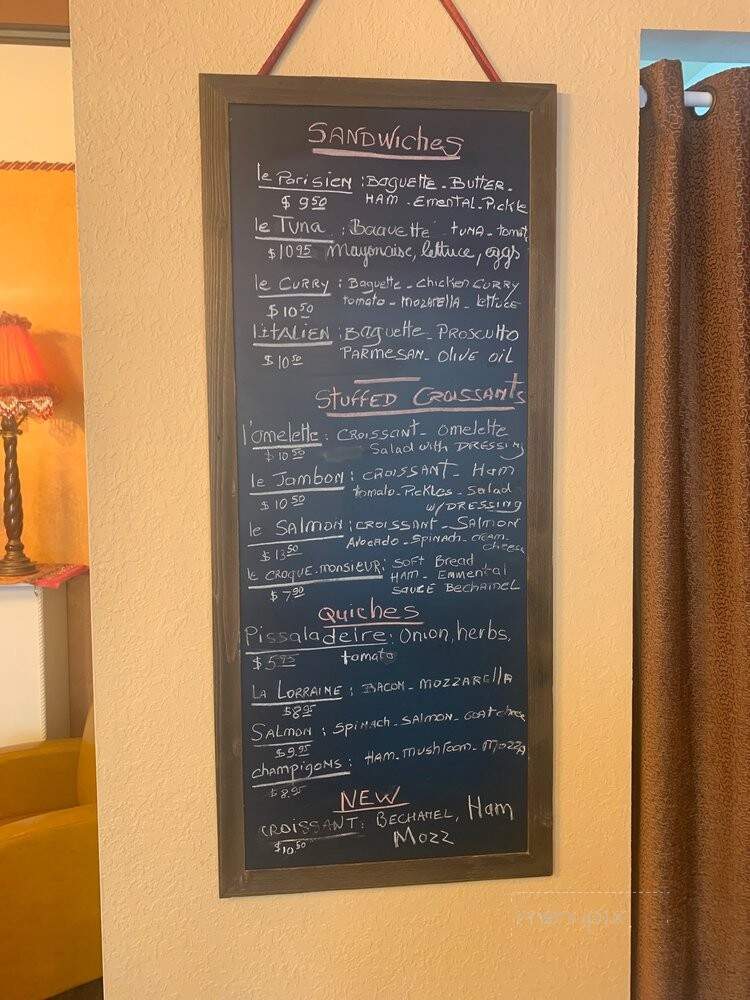 SANDWiches
le Parisien : Baguette - Butter -
$ 9 50 HAM - Emental - Pickle
le Tuna : Baguette tuna - tomat
$10 95 Mayonaise, lettuce, eggs
le CURRY : Baguette - chicken CURRY
$10 50 tomato - MOZARELLA - lettuce
L'ITALIEN : Baguette - PROSCUTTO
$10 50 PARMESAN - OLIVE OIL
STUFFED CROISSANTS
l'omelette : CROISSANT - omelette
$10 50 Salad with DRESSING
le Jambon : CROISSANT - Ham
$10 50 tomato - Pickles - Salad
w/ DRESSING
le SALMON : CROISSANT - SALMON
$13 50 Avocado - spinach - cream -
cheese
le CROQUE-MONSIEUR : SOFT Bread
HAM - Emmental
$7 90 SAUCE BECHAMEL
QUICHES
Pissaladeire : Onion, herbs,
$5 95 tomato
LA LORRAINE : BACON - MOZZARELLA
$8 95
SALMON : spinach - SALMON - GOAT cheese
$9 95
champigons : HAM - mushroom - MOZZA
$8 95
NEW
CROISSANT : BECHAMEL, Ham
$10 50 Mozz